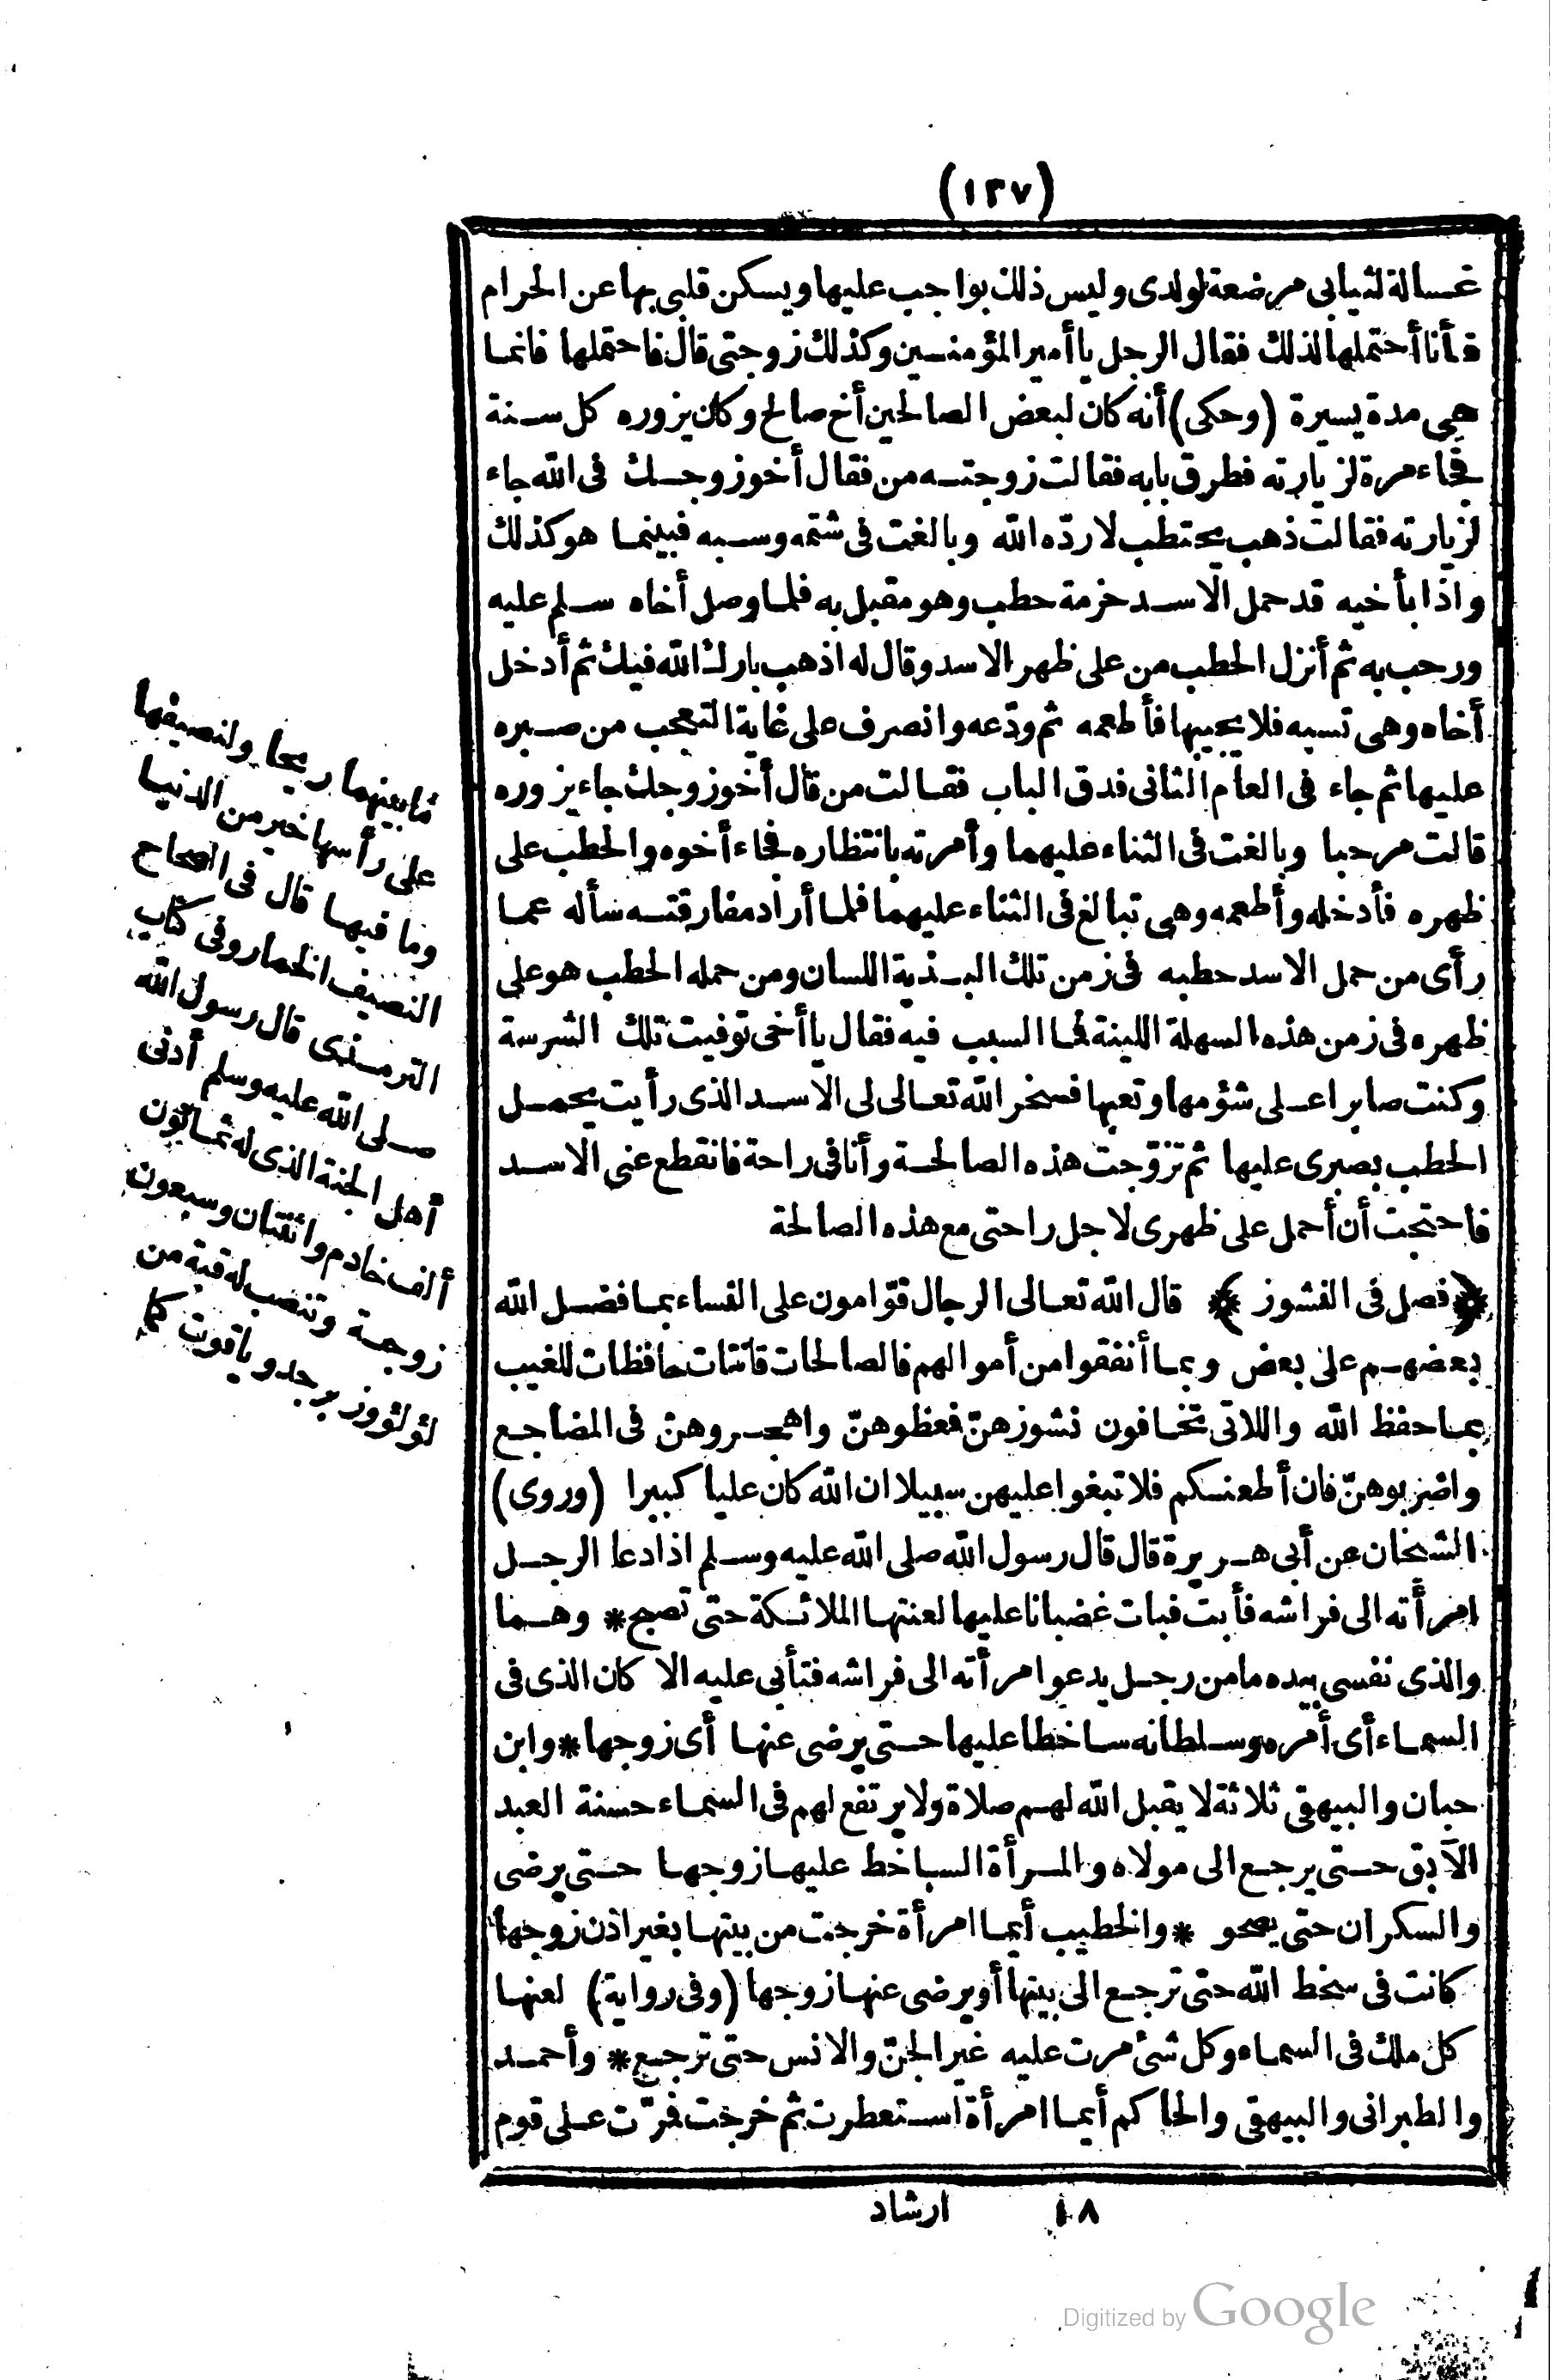 (١٣٧)
غسالة لثيابى مرضعة لولدى وليس ذلك بواجب عليها ويسكن قلبى بها عن الحرام
فأنا أحتملها لذلك فقال الرجل يا أمير المؤمنين وكذلك زوجتى قال فاحتملها فانما
هى مدة يسيرة (وحكى) أنه كان لبعض الصالحين أخ صالح وكان يزوره كل سنة
فجاء مرة لزيارته فطرق بابه فقالت زوجته من فقال أخو زوجك فى الله جاء
لزيارته فقالت ذهب يحتطب لا ردّه الله وبالغت فى شتمه وسبه فبينما هو كذلك
واذا بأخيه قد حمل الاسد حزمة حطب وهو مقبل به فلما وصل أخاه سلم عليه
ورحب به ثم أنزل الحطب من على ظهر الاسد وقال له اذهب بارك الله فيك ثم أدخل
أخاه وهى تسبه فلا يجيبها فأطعمه ثم ودّعه وانصرف على غاية التعجب من صبره
عليها ثم جاء فى العام الثانى فدق الباب فقالت من قال أخو زوجك جاء يزوره
قالت مرحبا وبالغت فى الثناء عليهما وأمرته بانتظاره فجاء أخوه والحطب على
ظهره فأدخله وأطعمه وهى تبالغ فى الثناء عليهما فلما أراد مفارقته سأله عما
رأى من حمل الاسد حطبه فى زمن تلك البذية اللسان ومن حمله الحطب هو على
ظهره فى زمن هذه السهلة اللينة فما السبب فيه فقال يا أخى توفيت تلك الشرسة
وكنت صابرا على شؤمها وتعبها فسخر الله تعالى لى الاسد الذى رأيت يحمل
الحطب بصبرى عليها ثم تزوّجت هذه الصالحة وأنا فى راحة فانقطع عنى الاسد
فاحتجت أن أحمل على ظهرى لاجل راحتى مع هذه الصالحة
﴿فصل فى النشوز﴾ قال الله تعالى الرجال قوّامون على النساء بما فضل الله
بعضهم على بعض وبما أنفقوا من أموالهم فالصالحات قانتات حافظات للغيب
بما حفظ الله واللاتى تخافون نشوزهنّ فعظوهنّ واهجروهنّ فى المضاجع
واضربوهنّ فان أطعنكم فلا تبغوا عليهن سبيلا ان الله كان عليا كبيرا (وروى)
الشيخان عن أبى هريرة قال قال رسول الله صلى الله عليه وسلم اذا دعا الرجل
امرأته الى فراشه فأبت فبات غضبانا عليها لعنتها الملائكة حتى تصبح * وهما
والذى نفسى بيده ما من رجل يدعو امرأته الى فراشه فتأبى عليه الا كان الذى فى
السماء أى أمره وسلطانه ساخطا عليها حتى يرضى عنها أى زوجها * وابن
حبان والبيهقى ثلاثة لا يقبل الله لهم صلاة ولا يرتفع لهم فى السماء حسنة العبد
الآبق حتى يرجع الى مولاه والمرأة الساخط عليها زوجها حتى يرضى
والسكران حتى يصحو * والخطيب أيما امرأة خرجت من بيتها بغير اذن زوجها
كانت فى سخط الله حتى ترجع الى بيتها أو يرضى عنها زوجها (وفى رواية) لعنها
كل ملك فى السماء وكل شئ مرت عليه غير الجنّ والانس حتى ترجع * وأحمد
والطبرانى والبيهقى والحاكم أيما امرأة استعطرت ثم خرجت فمرّت على قوم
١٨ ارشاد
ما بينهما ريحا ولنصيفها
على رأسها خير من الدنيا
وما فيها قال فى الصحاح
النصيف الخمار وفى كتاب
الترمذى قال رسول الله
صلى الله عليه وسلم أدنى
أهل الجنة الذى له ثمانون
ألف خادم واثنتان وسبعون
زوجة وتنصب له قبة من
لؤلؤ وزبرجد وياقوت كما
Digitized by Google